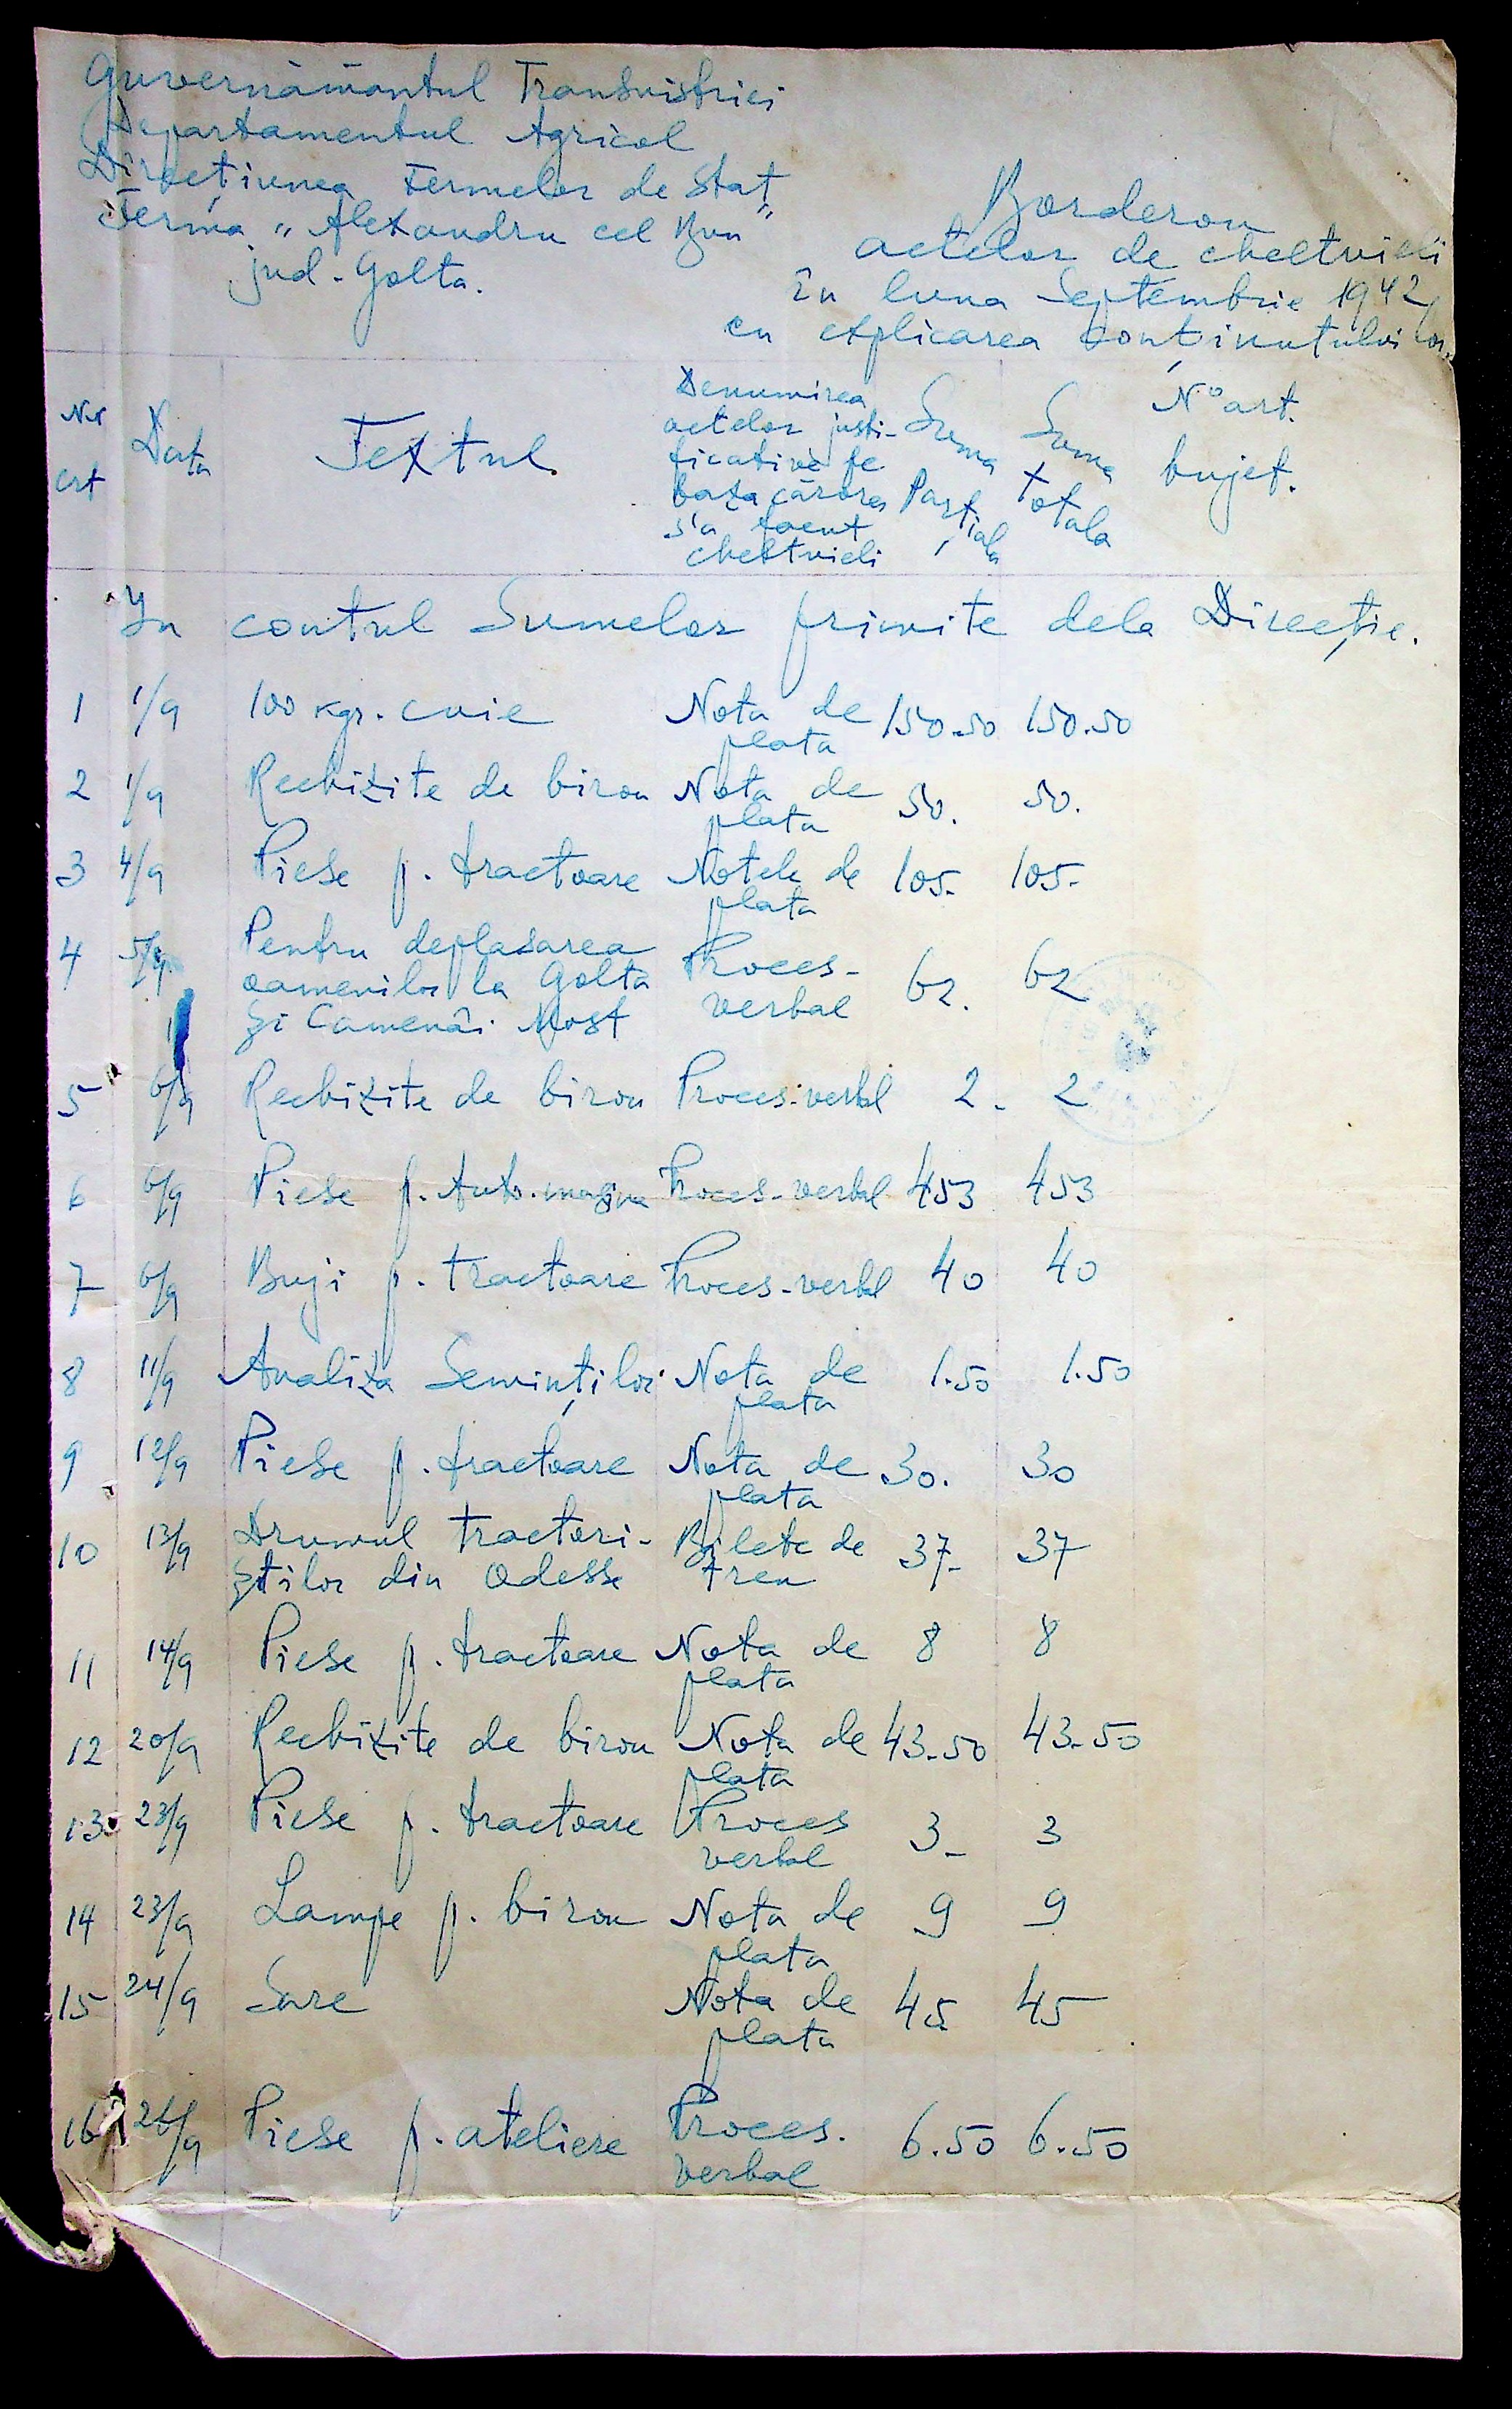 Guvernămantul Transnistriei
Departamentul Agricol
Direcțiunea Fermelor de Stat
Ferma „Alexandru cel Bun”
jud. Golta.
Borderou
actelor de cheltuieli
în luna Septembrie 1942,
cu explicarea conținutului lor.
Nr crt
Data
Textul
Denumirea
actelor justi-
ficative pe
baza cărora
s'a facut
cheltuieli
Suma Parțiala
Suma totala
Nº art.
bujet.
In contul Sumelor primite dela Direcție.
1 1/9 100 kgr. cuie Nota de 150.50 150.50
plata
2 1/9 Rechizite de birou Nota de 50. 50.
plata
3 4/9 Piese p. tractoare Notele de 105- 105-
plata
4 5/9 Pentru deplasarea
oamenilor la Golta Proces- 62. 62
și Camenâi Most verbal
5 6/9 Rechizite de birou Proces-verbal 2- 2
6 6/9 Piese p. Auto-mașina Proces-verbal 453 453
7 6/9 Buji p. tractoare Proces-verbal 40 40
8 11/9 Analiza Seminților Nota de 1.50 1.50
plata
9 12/9 Piese p. tractoare Nota de 30. 30
plata
10 13/9 Drumul tractori- Bilete de 37- 37
știlor din Odessa tren
11 14/9 Piese p. tractoare Nota de 8 8
plata
12 20/9 Rechizite de birou Nota de 43-50 43-50
plata
13 23/9 Piese p. tractoare Proces 3- 3
verbal
14 23/9 Lampe p. birou Nota de 9 9
plata
15 24/9 Sare Nota de 45 45
plata
16 26/9 Piese p. ateliere Proces. 6.50 6.50
verbal